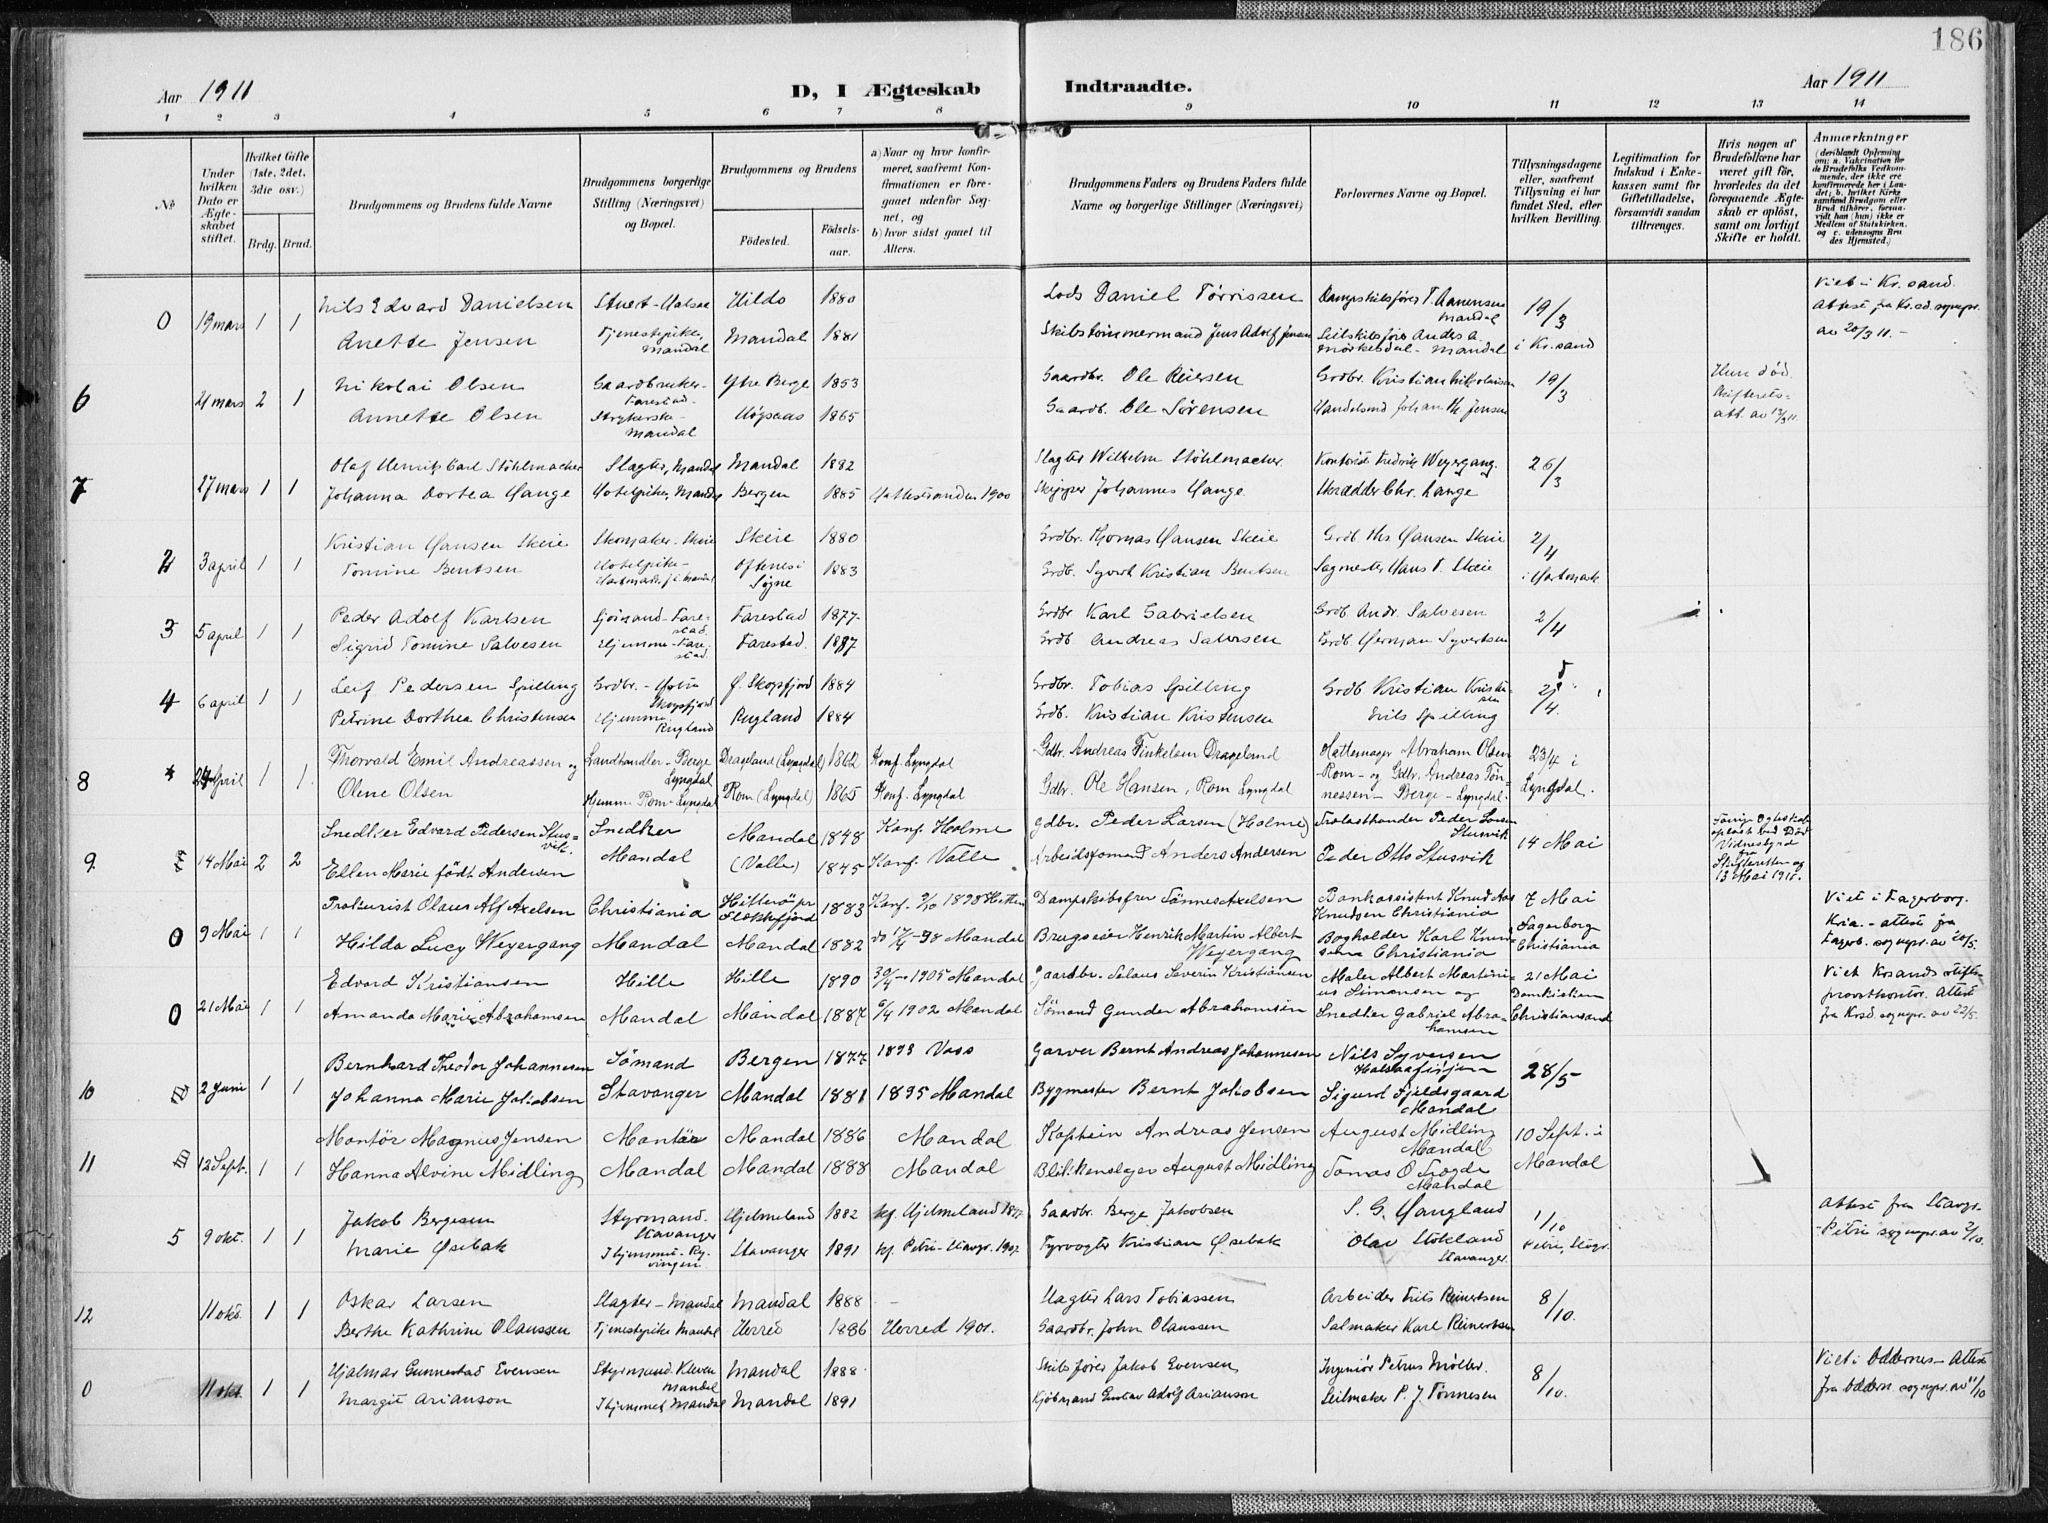 186
Aar 1911
D, I Ægteskab
Indtraadte.
Aar 1911
1 2 3 4 5 6 7 8 9 10 11 12 13 14
No
Under hvilken Dato er Ægteskabet stiftet.
Hvilket Gifte (1ste, 2det, 3die osv.)
Brdg. Brud.
Brudgommens og Brudens fulde Navne
Brudgommens borgerlige Stilling (Næringsvei) og Bopæl.
Brudgommens og Brudens
Fødested.
Fødselsaar.
a) Naar og hvor konfirmeret, saafremt Konfirmationen er foregaaet udenfor Sognet, og
b) hvor sidst gaaet til Alters.
Brudgommens Faders og Brudens Faders fulde Navne og borgerlige Stillinger (Næringsvei)
Forlovernes Navne og Bopæl.
Tillysningsdagene eller, saafremt Tillysning ei har fundet Sted, efter hvilken Bevilling.
Legitimation for Indskud i Enkekassen samt for Giftetilladelse, forsaavidt saadan tiltrænges.
Hvis nogen af Brudefolkene har været gift før, hvorledes da det foregaaende Ægteskab er opløst, samt om lovligt Skifte er holdt.
Anmærkninger
(deriblandt Oplysning om: a. Vakcination for de Brudefolks Vedkommende, der ikke ere konfirmerede her i Landet; b. hvilket Kirkesamfund Brudgom eller Brud tilhører, forsaavidt han (hun) ikke er Medlem af Statskirken, og c. udensogns Brudes Hjemsted.)
0 19 mars 1 1 Nils Edvard Danielsen Hilds 1880 Lods Daniel Tørrissen Dampskibsfører T. Aanensen Mandal 19/3 Viet i Kr.sand.
Anette Jensen Tjenestepike, Mandal Mandal 1881 Skibstømmermand Jens Adolf Jensen Seilskibsfører Anders A. Mörkesdal - Mandal i Kr.sand Attest fra Kr.sd. sognepr. av 20/3 11. -
6 21 mars 2 1 Nikolai Olsen Gaardbruker - Farestad Ytre Berge 1853 Gaardbr. Ole Reiersen Grdbr. Kristian Nikolaisen 19/3 Hun död. Skifterets-
Annette Olsen Strykerske - Mandal Högsaas 1865 Gaardb. Ole Sørensen Handelsmd Johan Th. Jensen att. av 13/3 11.
7 27 mars 1 1 Olaf Henrik Carl Stöhlmacher Slagter, Mandal Mandal 1882 Slagter Wilhelm Stöhlmacher. Kontorist Fredrik Weyergang. 26/3
Johanna Dortea Hange Hotelpike, Mandal Bergen 1885 1900 Skipper Johannes Hange Skrædder Chr. Lange
2 3 april 1 1 Kristian Hansen Skeie Skomaker - Skeie Skeie 1880 Grdbr. Thomas Hansen Skeie Grdb. Ths Hansen Skeie 2/4
Tomine Bentsen Hotelpike - Oftenes i Søgne 1883 Grdb. Syvert Kristian Bentsen Sagmester Hans T. Skeie i Hartmark
3 5 april 1 1 Peder Adolf Karlsen Sjømand - Farestad. Farestad 1877. Grdbr Karl Gabrielsen Grdb. Andr. Salvesen 2/4
Sigrid Tomine Salvesen Hjemme - Farestad. Farestad. 1887 Grdb. Andreas Salvesen Grdb. Herman Syvertsen
4 6 april 1 1 Leif Pedersen Spilling Grdbr. - Holm Skogsfjord Ø. Skogsfjord 1884 Grdbr. Tobias Spilling Grdb Kristian Kristensen 2/4.
Petrine Dorthea Christensen Hjemme. Rugland Rugland 1884 Grdb. Kristian Kristensen Erik Spilling
8 April 1 1. Thorvald Emil Andreassen og Landhandler - Berge Lyngdal Drageland (Lyngdal) 1862 Konf. Lyngdal Gdbr. Andreas Finkelsen Drageland Hattemager Abraham Olsen 23/4 i
Olene Olsen Hemme Rom - Lyngdal Rom (Lyngdal) 1865 Konf. Lyngdal Gdbr. Ole Hansen, Rom Lyngdal - Rom - og Gdbr. Andreas Tönnessen - Berge - Lyngdal. Lyngdal.
9 14 Mai 2 2 Snedker Edvard Pedersen Stusvik. Snedker Mandal 1848 Konf. Holme Gdbr. Peder Larsen (Holme) Peder Larsen Stusvik 14 Mai
Ellen Marie født Andersen Mandal (Valle) 1845 Konf. Valle Arbeidsformand Anders Andersen Peder Otto Stusvik Skifteretten 13 Mai 1911.
0 9 Mai 1 1 Prokurist Olaus Alf Axelsen Christiania Hitterö pr Flekkefjord 1883 Konf. 2/10 1898 Hitterö Dampskibsfører Tönnes Axelsen Bankassistent Knud Aas Knudsen Christiania 7 Mai Viet i Fagerborg.
Hilda Lucy Weyergang Mandal Mandal 1882 do 17/4 - 98 Mandal Brugseier Henrik Martin Albert Weyergang Bogholder Karl Knudsen Christiania Fagerborg Christiania Kria. - attest fra Fagerb. sognepr. av 20/5.
0 21 Mai 1 1 Edvard Kristiansen Hille Hille 1890 30/4 - 1905 Mandal Gaardbr. Salaus Severin Kristiansen Maler Albert Martinius Simonsen og 21 Mai Viet Krsands stiftsprovstkontor. Attest
Amanda Marie Abrahamsen Mandal Mandal 1887 6/4 1902 Mandal Sömand Gunder Abrahamsen Snedker Gabriel Abrahamsen Domkirken Christiansand fra Krsd sognepr. av 22/5.
10 2 Juni 1 1 Bernhard Theodor Johannesen Sömand Bergen 1877 1893 Voss Garver Bernt Andreas Johannesen Nils Syversen 28/5
Johanna Marie Jakobsen Stavanger Mandal 1881 1895 Mandal Bygmester Bernt Jakobsen Sigurd Fjeldsgaard Mandal
11 12 Sept. 1 1 Montör Magnus Jensen Montör Mandal 1886 Mandal Kaptein Andreas Jensen August Midling Mandal 10 Sept. i
Hanna Alvine Midling Mandal Mandal 1888 Mandal Blikkenslager August Midling Tomas O Trogde Mandal Mandal
5 9 okt. 1 1 Jakob Bergesen Styrmand. Stavanger Hjelmeland 1882 kf. Hjelmeland Gaardbr. Berge Jakobsen S. G. Hangland 1/10 Attest fra Stavgr.
Marie Øsebak Stavanger 1891 kf Petri - Stavgr. 1907. Fyrvogter Kristian Øsebak Olav Stokland Stavanger. Petri, Stvgr. - Petri sognepr. av 2/10.
12 11 okt. 1 1 Oskar Larsen Slagter - Mandal Mandal 1888 - Slagter Lars Tobiassen Arbeider Frits Reinertsen 8/10.
Berthe Kathrine Olaussen Tjenestepike Mandal Herred 1886 Herred 1901. Gaardbr. John Olaussen Salmaker Karl Reinertsen
0 11 okt. 1 1 Hjalmar Gunnestad Evensen Styrmand. Kleven Mandal Mandal 1888. Skibsfører Jakob Evensen Ingeniör Petrus Møller. 8/10. Viet i Oddernes - Attest
Margit Arianson I hjemmet Mandal Mandal 1891 Kjöbmand Gustav Adolf Arianson Seilmaker P. J. Tönnesen fra Oddern. sognepr. av 11/10